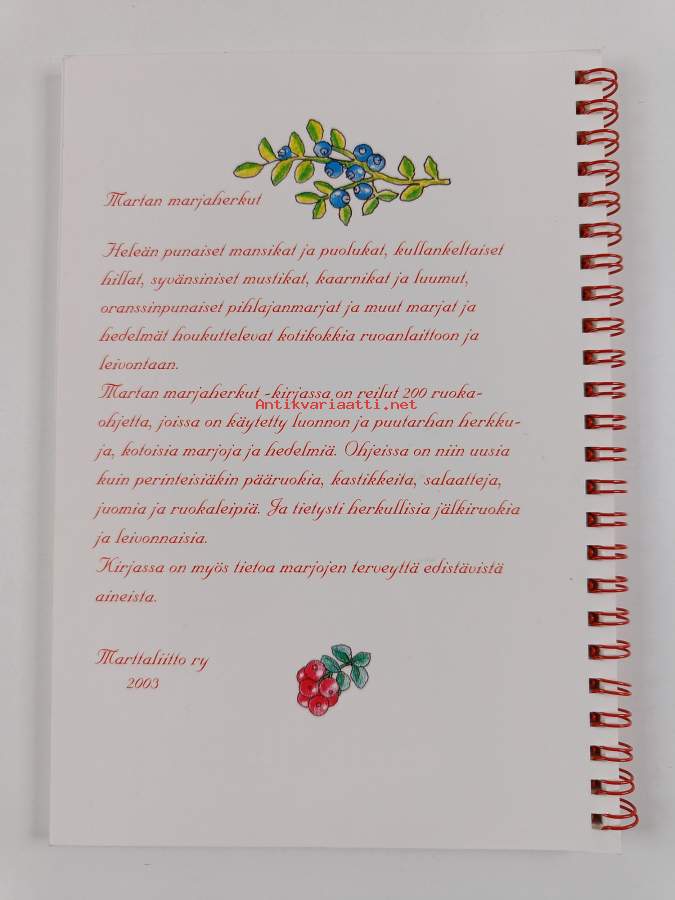 Martan marjaherkut
Heleän punaiset mansikat ja puolukat, kullankeltaiset
hillat, syvänsiniset mustikat, kaarnikat ja luumut,
oranssinpunaiset pihlajanmarjat ja muut marjat ja
hedelmät houkuttelevat kotikokkia ruoanlaittoon ja
leivontaan.
Martan marjaherkut -kirjassa on reilut 200 ruoka-
Antikvariaatti.net
ohjetta, joissa on käytetty luonnon ja puutarhan herkku-
ja, kotoisia marjoja ja hedelmiä. Ohjeissa on niin uusia
kuin perinteisiäkin pääruokia, kastikkeita, salaatteja,
juomia ja ruokaleipiä. Ja tietysti herkullisia jälkiruokia
ja leivonnaisia.
Kirjassa on myös tietoa marjojen terveyttä edistävistä
aineista.
Marttaliitto ry
2003